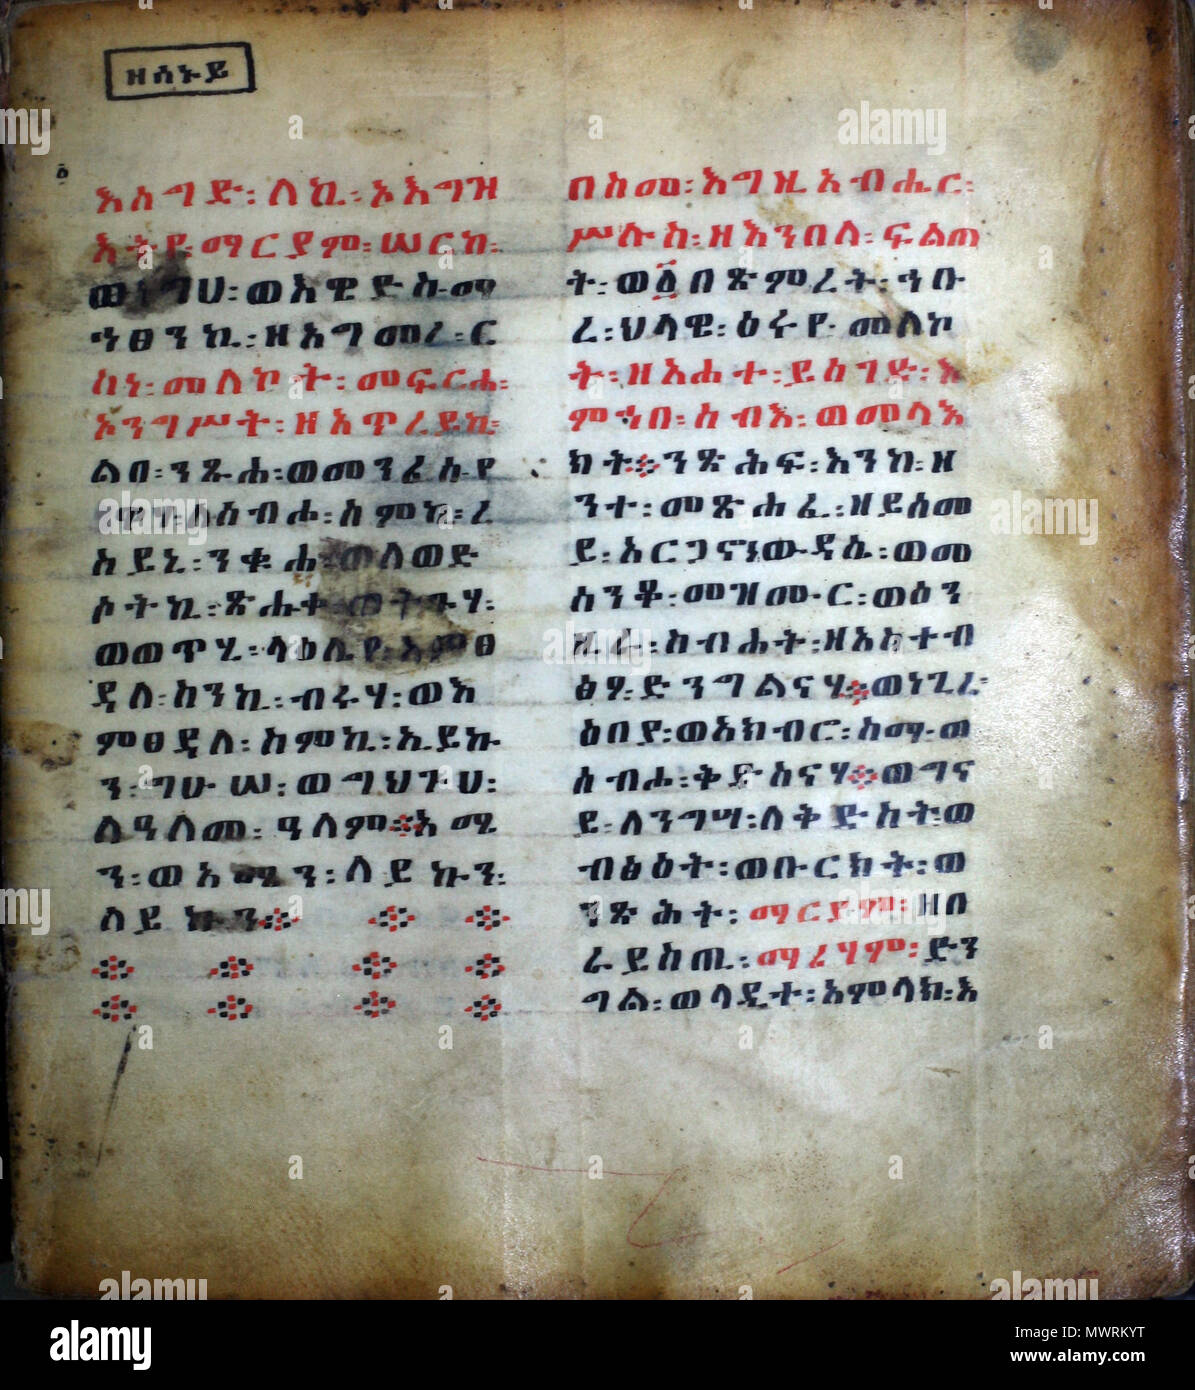 ዘሰኑይ
እሰግድ፡ለኪ፡ኦእግዝ
እትየ፡ማርያም፡ሠርከ፡
ወነግሀ፡ወእዌድስ፡ማ
ኅፀንኪ፡ዘአግመረ፡ር
ስነ፡መለኮት፡መፍርሐ፡
ኦንግሥት፡ዘአጥረይኪ፡
ልበ፡ንጹሐ፡ወመንፈሰ፡የ
ዋሃ፡ለስብሐ፡ስምኪ፡ረ
ስይኒ፡ንቁሐ፡ወለወድ
ሶትኪ፡ጽሑቀ፡ወትጉሃ፡
ወወጥሂ፡ላዕሌየ፡አምፀ
ዳለ፡ከንኪ፡ብሩሃ፡ወእ
ምፀዳለ፡ስምኪ፡ኢይኩ
ን፡ግሁሠ፡ወግህጉሀ፡
ለዓለመ፡ዓለም፨አሜ
ን፡ወአሜን፡ለይኩን፡
ለይኩን፨
በስመ፡እግዚአብሔር፡
ሥሉስ፡ዘእንበለ፡ፍልጠ
ት፡ወ፩በጽምረት፡ኅቡ
ረ፡ህላዌ፡ዕሩየ፡መለኮ
ት፡ዘአሐተ፡ይሰገድ፡እ
ምኀበ፡ሰብእ፡ወመላእ
ክት፨ንጽሕፍ፡እንከ፡ዘ
ንተ፡መጽሐፈ፡ዘይሰመ
ይ፡አርጋኖነ፡ውዳሴ፡ወመ
ሰንቆ፡መዝሙር፡ወዕን
ዚራ፡ስብሐት፡ዘአስተብ
ፅዖ፡ድንግልናሃ፨ወነጊረ፡
ዕበያ፡ወአክብሮ፡ስማ፡ወ
ሰብሖ፡ቅድስናሃ፨ወግና
ይ፡ለንግሣ፡ለቅድስት፡ወ
ብፅዕት፡ወቡርክት፡ወ
ንጽሕት፡ማርያም፡ዘበ
ራይስጢ፡ማሪሃም፡ድን
ግል፡ወላዲተ፡አምላክ፡እ
alamy
Image ID: MWRKYT
www.alamy.com